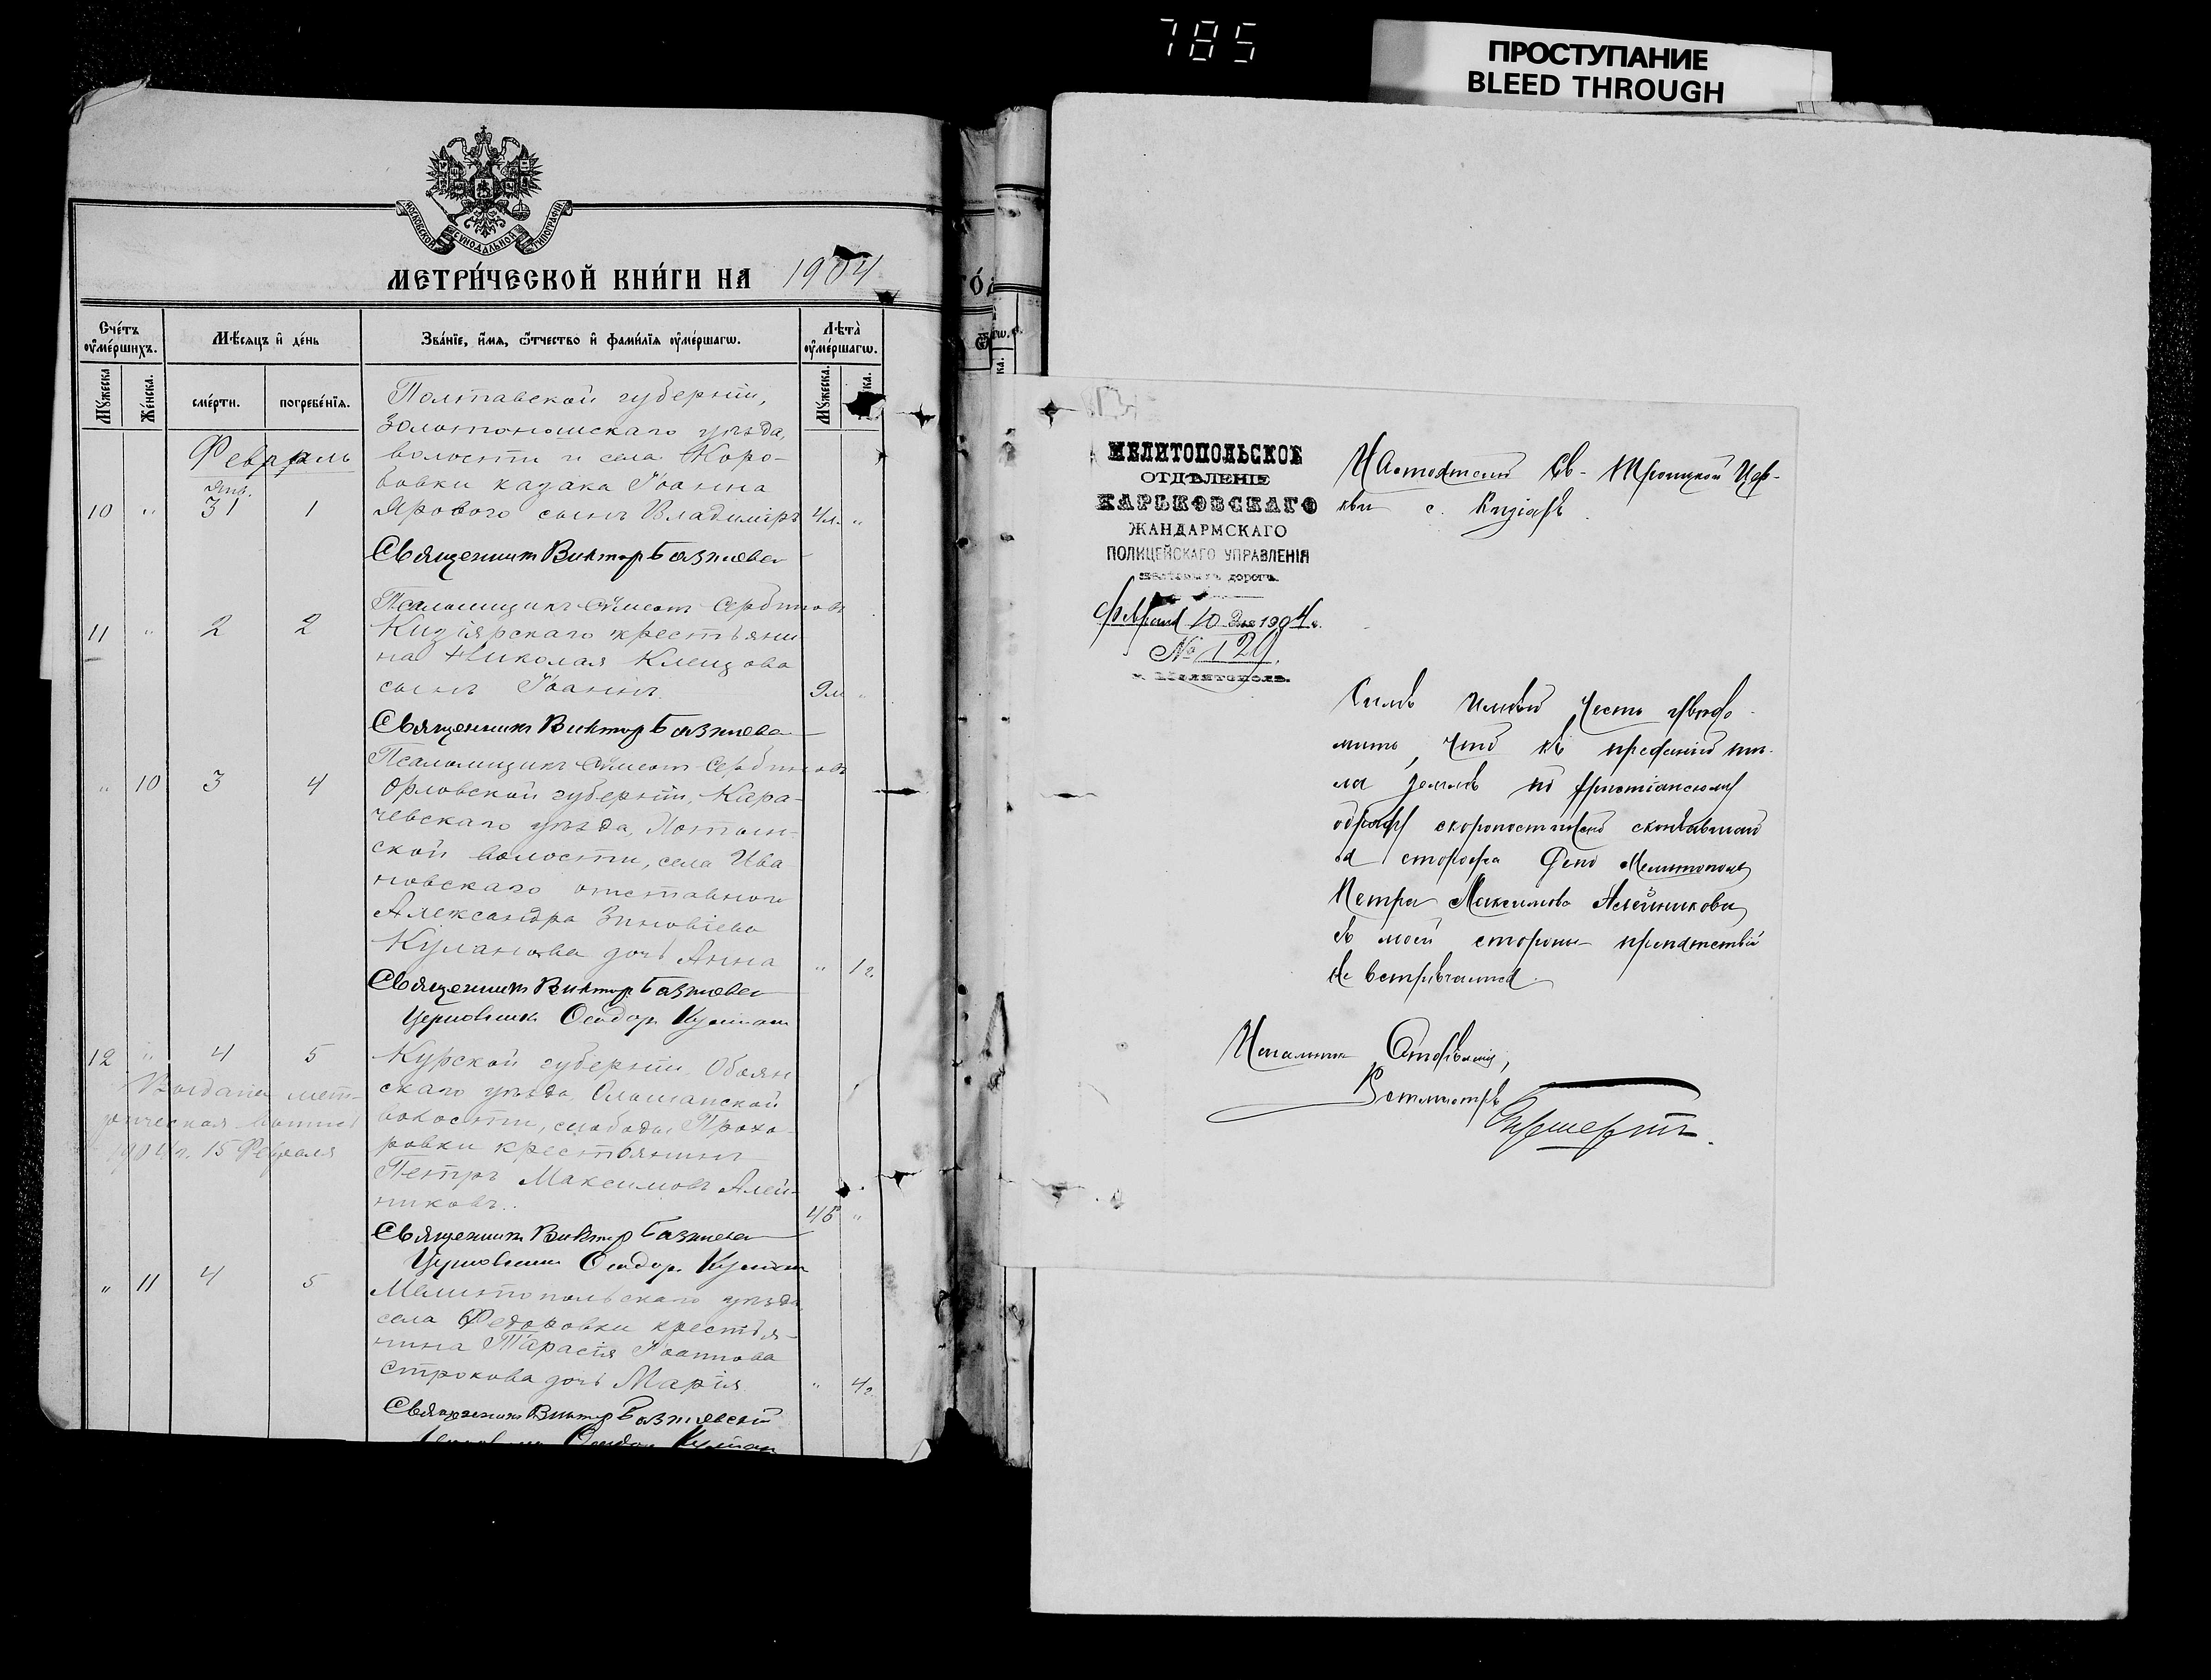 785
ПРОСТУПАНИЕ
BLEED THROUGH
МОСКОВСКОЙ СѴНОДАЛЬНОЙ ТИПОГРАФІИ
МЕТРИ́ЧЕСКОЙ КНИ́ГИ НА 1904
Сче́тъ ѹ҆ме́ршихъ.
Мѣ́сяцъ и҆ де́нь
Зва́нїе, и҆́мя, ѻ҆́тчество и҆ фами́лїя ѹ҆ме́ршагѡ.
Лѣта̀ ѹ҆ме́ршагѡ.
Мꙋ́жеска
Же́нска.
сме́рти.
погребе́нїя.
Мꙋ́жеска.
Полтавской губерніи,
Золотоношскаго уѣзда,
Февраль
волости и села Коро-
бовки казака Іоанна
Янв.
10 " 31 1 Ярового сынъ Владиміръ 4м. "
Священникъ Виктор
Псаломщикъ
11 " 2 2 Кизіярскаго крестьяни
на Николая Клецова
сынъ Іоаннъ. 9м "
Священникъ Виктор
Псаломщикъ
" 10 3 4 Орловской губерніи, Кара-
чевскаго уѣзда,
ской волости, села Ива
новскаго отставного
Александра Зиновіева
Куланова дочь Анна " 1г.
Священникъ Виктор
Церковникъ Ѳеодор
12 " 4 5 Курской губерніи Обоян
скаго уѣзда Ольшанской
волости, слободы Прохо-
ровки крестьянинъ
Петръ Максимовъ Алей-
никовъ. 45 "
Выдана мет-
рическая выпись
1904 г. 15 Февраля
Священникъ Виктор
Церковникъ Ѳеодор
" 11 4 5 Мелитопольскаго уѣзда
села Федоровки крестья-
нина Тарасія Іоаннова
Строкова дочь Марія " 4г.
Священникъ Виктор
МЕЛИТОПОЛЬСКОЕ
ОТДѢЛЕНІЕ
ХАРЬКОВСКАГО
ЖАНДАРМСКАГО
ПОЛИЦЕЙСКАГО УПРАВЛЕНІЯ
желѣзныхъ дорогъ.
Февраля 10 дня 1904 г.
№ 129.
г. Мелитополь.
Настоятелю Св- Троицкой Цер-
кви с. Кизіяръ
Симъ имѣю честь увѣдо-
мить, что къ преданію тѣ-
ла землѣ по христіанскому
обряду скоропостижно скончавшаго
ся сторожа Депо Мелитополь
Петра Максимова Алейникова
съ моей стороны препятствій
не встрѣчается.
Начальникъ Отдѣленія,
Ротмистръ